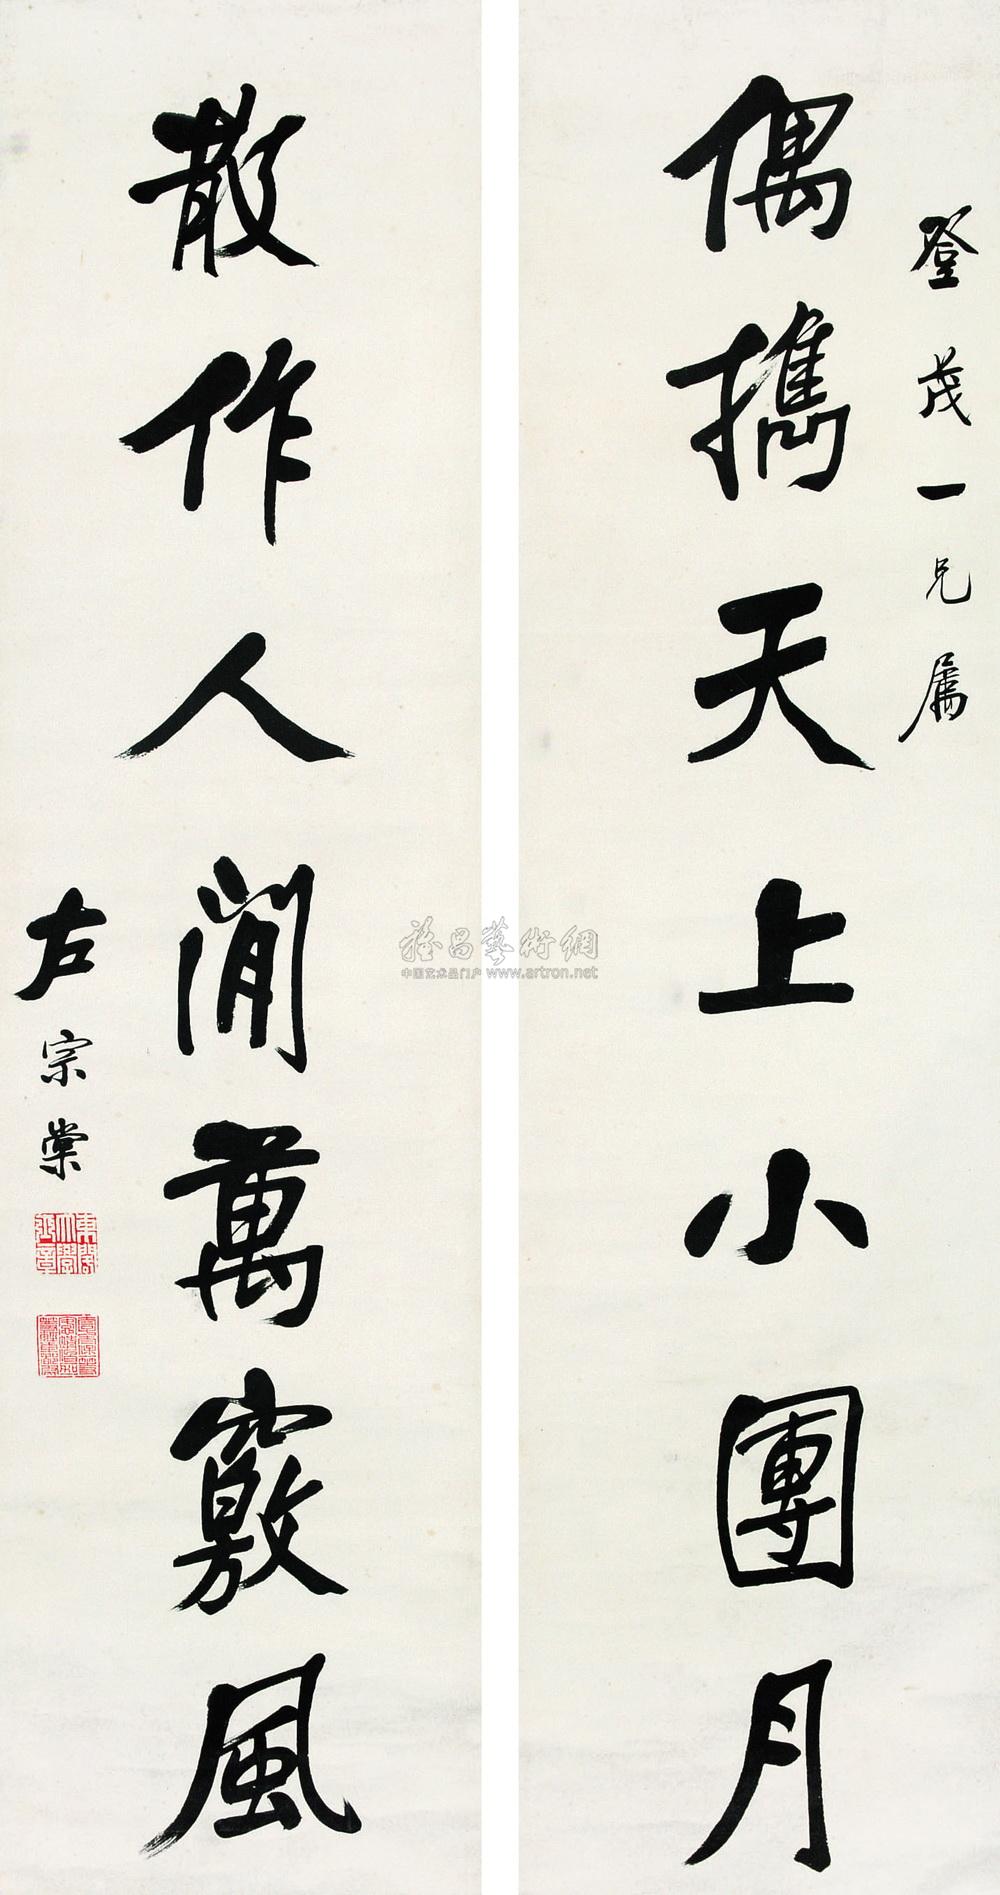 登茂一兄属
偶攜天上小團月
散作人間萬竅風
左宗棠
雅昌藝術網
中国艺术品门户 www.artron.net